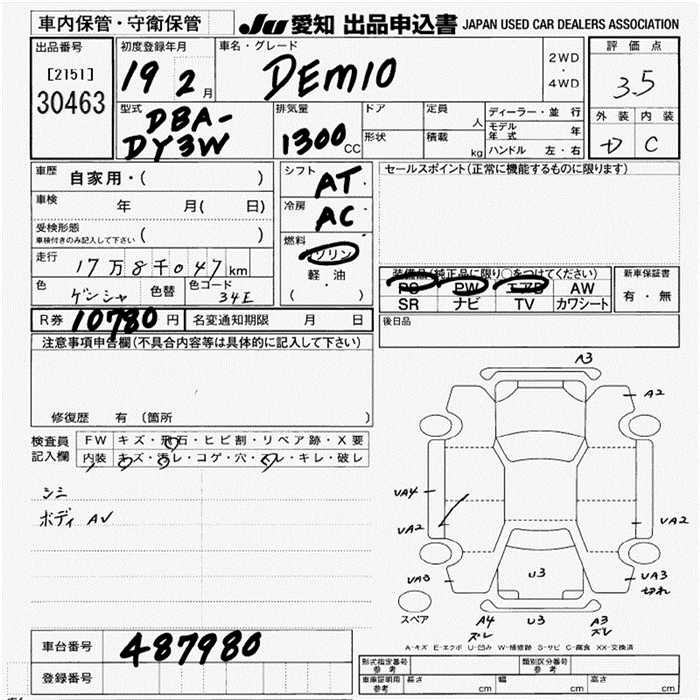 車内保管・守衛保管
JU 愛知 出品申込書 JAPAN USED CAR DEALERS ASSOCIATION
出品番号
[2151]
30463
初度登録年月
19 2 月
車名・グレード
DEMIO
2WD
・
4WD
評価点
3.5
外装 内装
C
型式
DBA-
DY3W
排気量
1300 CC
ドア
定員
人
形状
積載
kg
ディーラー・並行
モデル年式 年
ハンドル 左・右
車歴
自家用・( )
車検 年 月( 日)
受検形態
車検付きのみ記入して下さい ( )
走行
17万8千047km
色 ゲンシャ 色替 色コード 34E
シフト
AT
冷房
AC
燃料
ガソリン
・
軽 油
( )
R券 10780 円 名変通知期限 月 日
セールスポイント(正常に機能するものに限ります)
装備品(純正品に限り○をつけてください)
PS PW エアB AW
SR ナビ TV カワシート
新車保証書
有・無
後日品
注意事項申告欄(不具合内容等は具体的に記入して下さい)
修復歴 有 〔箇所
検査員
記入欄
FW キズ・飛石・ヒビ割・リペア跡・X要
内装 キズ・汚レ・コゲ・穴・スレ・キレ・破レ
シミ
ボディ AV
A3
A2
UA4
UA2
UA2
UA3
切れ
U3
スペア
A4
ズレ
U3
A3
ズレ
A-キズ E-エクボ U-凹み W-補修跡 S-サビ C-腐食 XX-交換済
車台番号 487980
登録番号
形式指定番号
参考
類別区分番号
参考
車庫証明用
参考
長さ cm 幅 cm 高さ cm